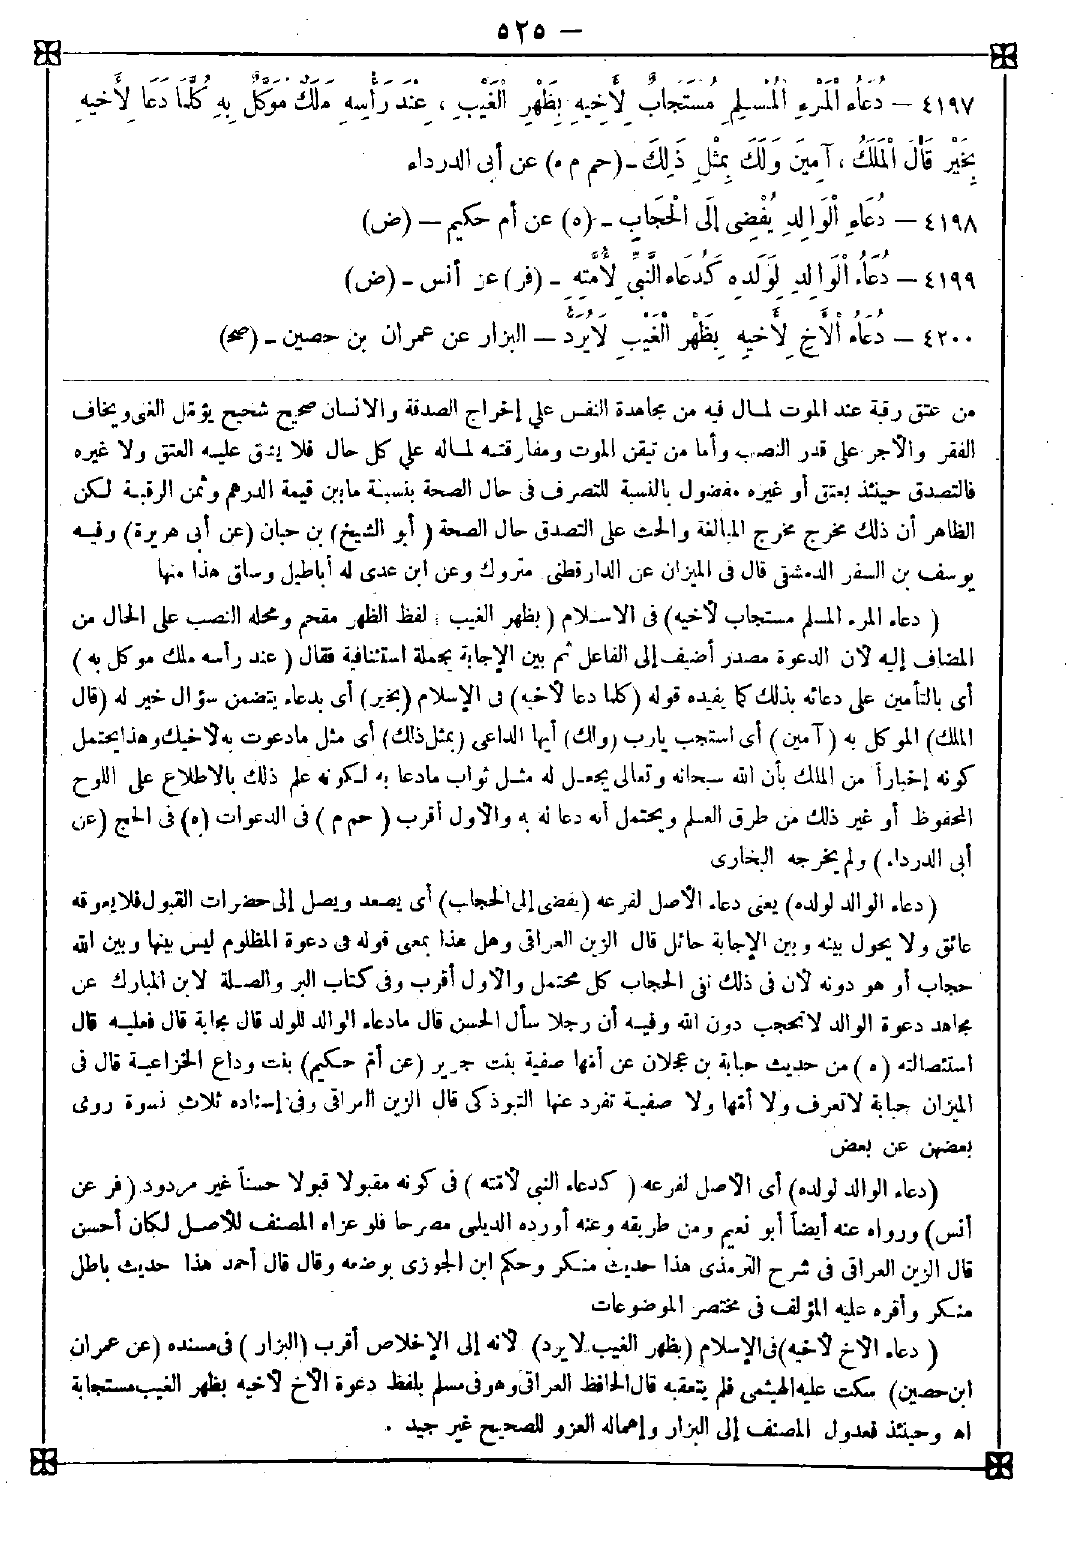 — ٥٢٥
٤١٩٧ — دُعَاءُ الْمَرْءِ الْمُسْلِمِ مُسْتَجَابٌ لِأَخِيهِ بِظَهْرِ الْغَيْبِ ، عِنْدَ رَأْسِهِ مَلَكٌ مُوَكَّلٌ بِهِ كُلَّمَا دَعَا لِأَخِيهِ
بِخَيْرٍ قَالَ الْمَلَكُ ، آمِينَ وَلَكَ بِمِثْلِ ذَلِكَ ـ (حم م ه) عن أبى الدرداء
٤١٩٨ — دُعَاءِ الْوَالِدِ يُفْضِى إِلَى الْحَجَابِ ـ (ه) عن أم حكيم — (ض)
٤١٩٩ — دُعَاءُ الْوَالِدِ لِوَلَدِهِ كَدُعَاءِ النَّبِىِّ لِأُمَّتِهِ ـ (فر) عن أنس ـ (ض)
٤٢٠٠ — دُعَاءُ الْأَخِ لِأَخِيهِ بِظَهْرِ الْغَيْبِ لَا يُرَدُّ — البزار عن عمران بن حصين ـ (صح)
من عتق رقبة عند الموت لمال فيه من مجاهدة النفس على إخراج الصدقة والانسان صحيح شحيح يؤمل الغنى ويخاف
الفقر والأجر على قدر النصب وأما من تيقن الموت ومفارقته لماله على كل حال فلا يشق عليه العتق ولا غيره
فالتصدق حينئذ بعتق أو غيره مفضول بالنسبة للتصرف فى حال الصحة بنسبة مابين قيمة الدرهم وثمن الرقبة لكن
الظاهر أن ذلك مخرج مخرج المبالغة والحث على التصدق حال الصحة ( أبو الشيخ) بن حبان (عن أبى هريرة) وفيه
يوسف بن السفر الدمشقى قال فى الميزان عن الدارقطنى متروك وعن ابن عدى له أباطيل وساق هذا منها
( دعاء المرء المسلم مستجاب لأخيه) فى الاسلام ( بظهر الغيب : لفظ الظهر مقحم ومحله النصب على الحال من
المضاف إليه لأن الدعوة مصدر أضيف إلى الفاعل ثم بين الإجابة بجملة استئنافية فقال ( عند رأسه ملك موكل به )
أى بالتأمين على دعائه بذلك كما يفيده قوله (كلما دعا لأخيه) فى الإسلام (بخير) أى بدعاء يتضمن سؤال خير له (قال
الملك) الموكل به ( آمين ) أى استجب يارب (ولك) أيها الداعى (بمثل ذلك) أى مثل مادعوت به لأخيك وهذا يحتمل
كونه إخباراً من الملك بأن الله سبحانه وتعالى يجعل له مثل ثواب مادعا به لكونه علم ذلك بالاطلاع على اللوح
المحفوظ أو غير ذلك من طرق العلم ويحتمل أنه دعا له به والأول أقرب ( حم م ) فى الدعوات (ه) فى الحج (عن
أبى الدرداء ) ولم يخرجه البخارى
( دعاء الوالد لولده) يعنى دعاء الأصل لفرعه (يفضى إلى الحجاب) أى يصعد ويصل إلى حضرات القبول فلا يعوقه
عائق ولا يحول بينه وبين الإجابة حائل قال الزين العراقى وهل هذا بمعنى قوله فى دعوة المظلوم ليس بينها وبين الله
حجاب أو هو دونه لأن فى ذلك نفى الحجاب كل محتمل والأول أقرب وفى كتاب البر والصلة لابن المبارك عن
مجاهد دعوة الوالد لاتحجب دون الله وفيه أن رجلا سأل الحسن قال مادعاء الوالد للولد قال نجابة قال فعليه قال
استئصاله ( ه ) من حديث حبابة بن عجلان عن أمها صفية بنت جرير (عن أم حكيم) بنت وداع الخزاعية قال فى
الميزان حبابة لاتعرف ولا أمها ولا صفية تفرد عنها التبوذكى قال الزين العراقى وفى إسناده ثلاث نسوة روى
بعضهن عن بعض
(دعاء الوالد لولده) أى الاصل لفرعه ( كدعاء النبى لأمته ) فى كونه مقبولا قبولا حسناً غير مردود (فر عن
أنس) ورواه عنه أيضاً أبو نعيم ومن طريقه وعنه أورده الديلمى مصرحا فلو عزاه المصنف للأصل لكان أحسن
قال الزين العراقى فى شرح الترمذى هذا حديث منكر وحكم ابن الجوزى بوضعه وقال قال أحمد هذا حديث باطل
منكر وأقره عليه المؤلف فى مختصر الموضوعات
( دعاء الأخ لأخيه) فى الإسلام (بظهر الغيب لايرد) لأنه إلى الإخلاص أقرب (البزار ) فى مسنده (عن عمران
ابن حصين) سكت عليه الهيثمى فلم يتعقبه قال الحافظ العراقى وهو فى مسلم بلفظ دعوة الأخ لأخيه بظهر الغيب مستجابة
اه وحينئذ فعدول المصنف إلى البزار وإهماله العزو للصحيح غير جيد .